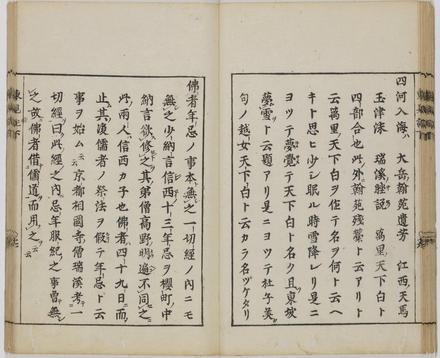 四河入海ハ大岳ノ翰苑遺芳 江西ノ天馬
玉津沫 瑞溪ノ脞説 萬里ノ天下白ト
四部合也此外翰苑殘藁ト云アリト
云萬里ノ天下白ヲ作テ名ヲ何ト云ヘ
キト思ヒ少シ眠ル時雪降レリ是ニ
ヨツテ夢覺テ天下白ト名ク且東坡
夢雪ト云題アリ是ニヨツテ杜子美
句ノ越女天下白ト云カラ名ヅケタリ
佛者年忌ノ事本無之一切經ノ内ニモ
無之少納言信西十三年忌ヲ櫻町中
納言欲修之其弟僧高野明遍不同之
此兩人信西カ子也佛者四十九日ニ而
止其後儒者ノ祭法ヲ假テ年忌ト云
事ヲ始ム云云京都相國寺僧瑞溪考一
切經曰此經之内忌年服紀之事曾無
之故佛者借儒道而用之云云